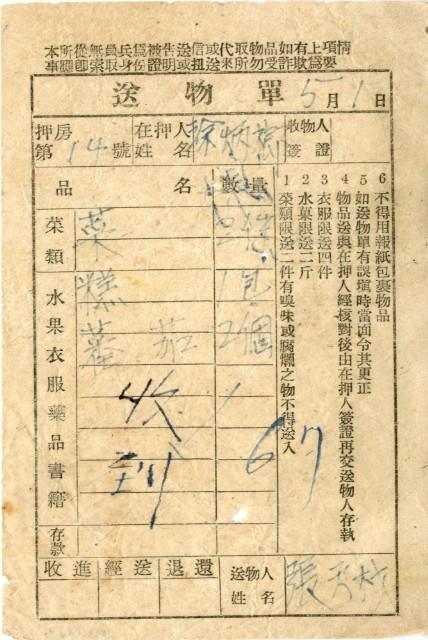 本所從無員兵爲被告送信或代取物品如有上項情
事應即索取身份證明或扭送來所勿受詐欺爲要
送物單 5月1日
押房第14號
在押人姓名 徐
收物人簽證
品名 數量
菜類 菜 2
水果 糕 1包
蕃茄 2個
衣服
藥品
書籍
存款
收到
67
1 菜類限送二件有嗅味或腐爛之物不得送入
2 水菓限送二斤
3 衣服限送四件
4 物品送與在押人經核對後由在押人簽證再交送物人存執
5 如送物單有誤塡時當面令其更正
6 不得用報紙包裹物品
收進 經送 退還
送物人姓名 張